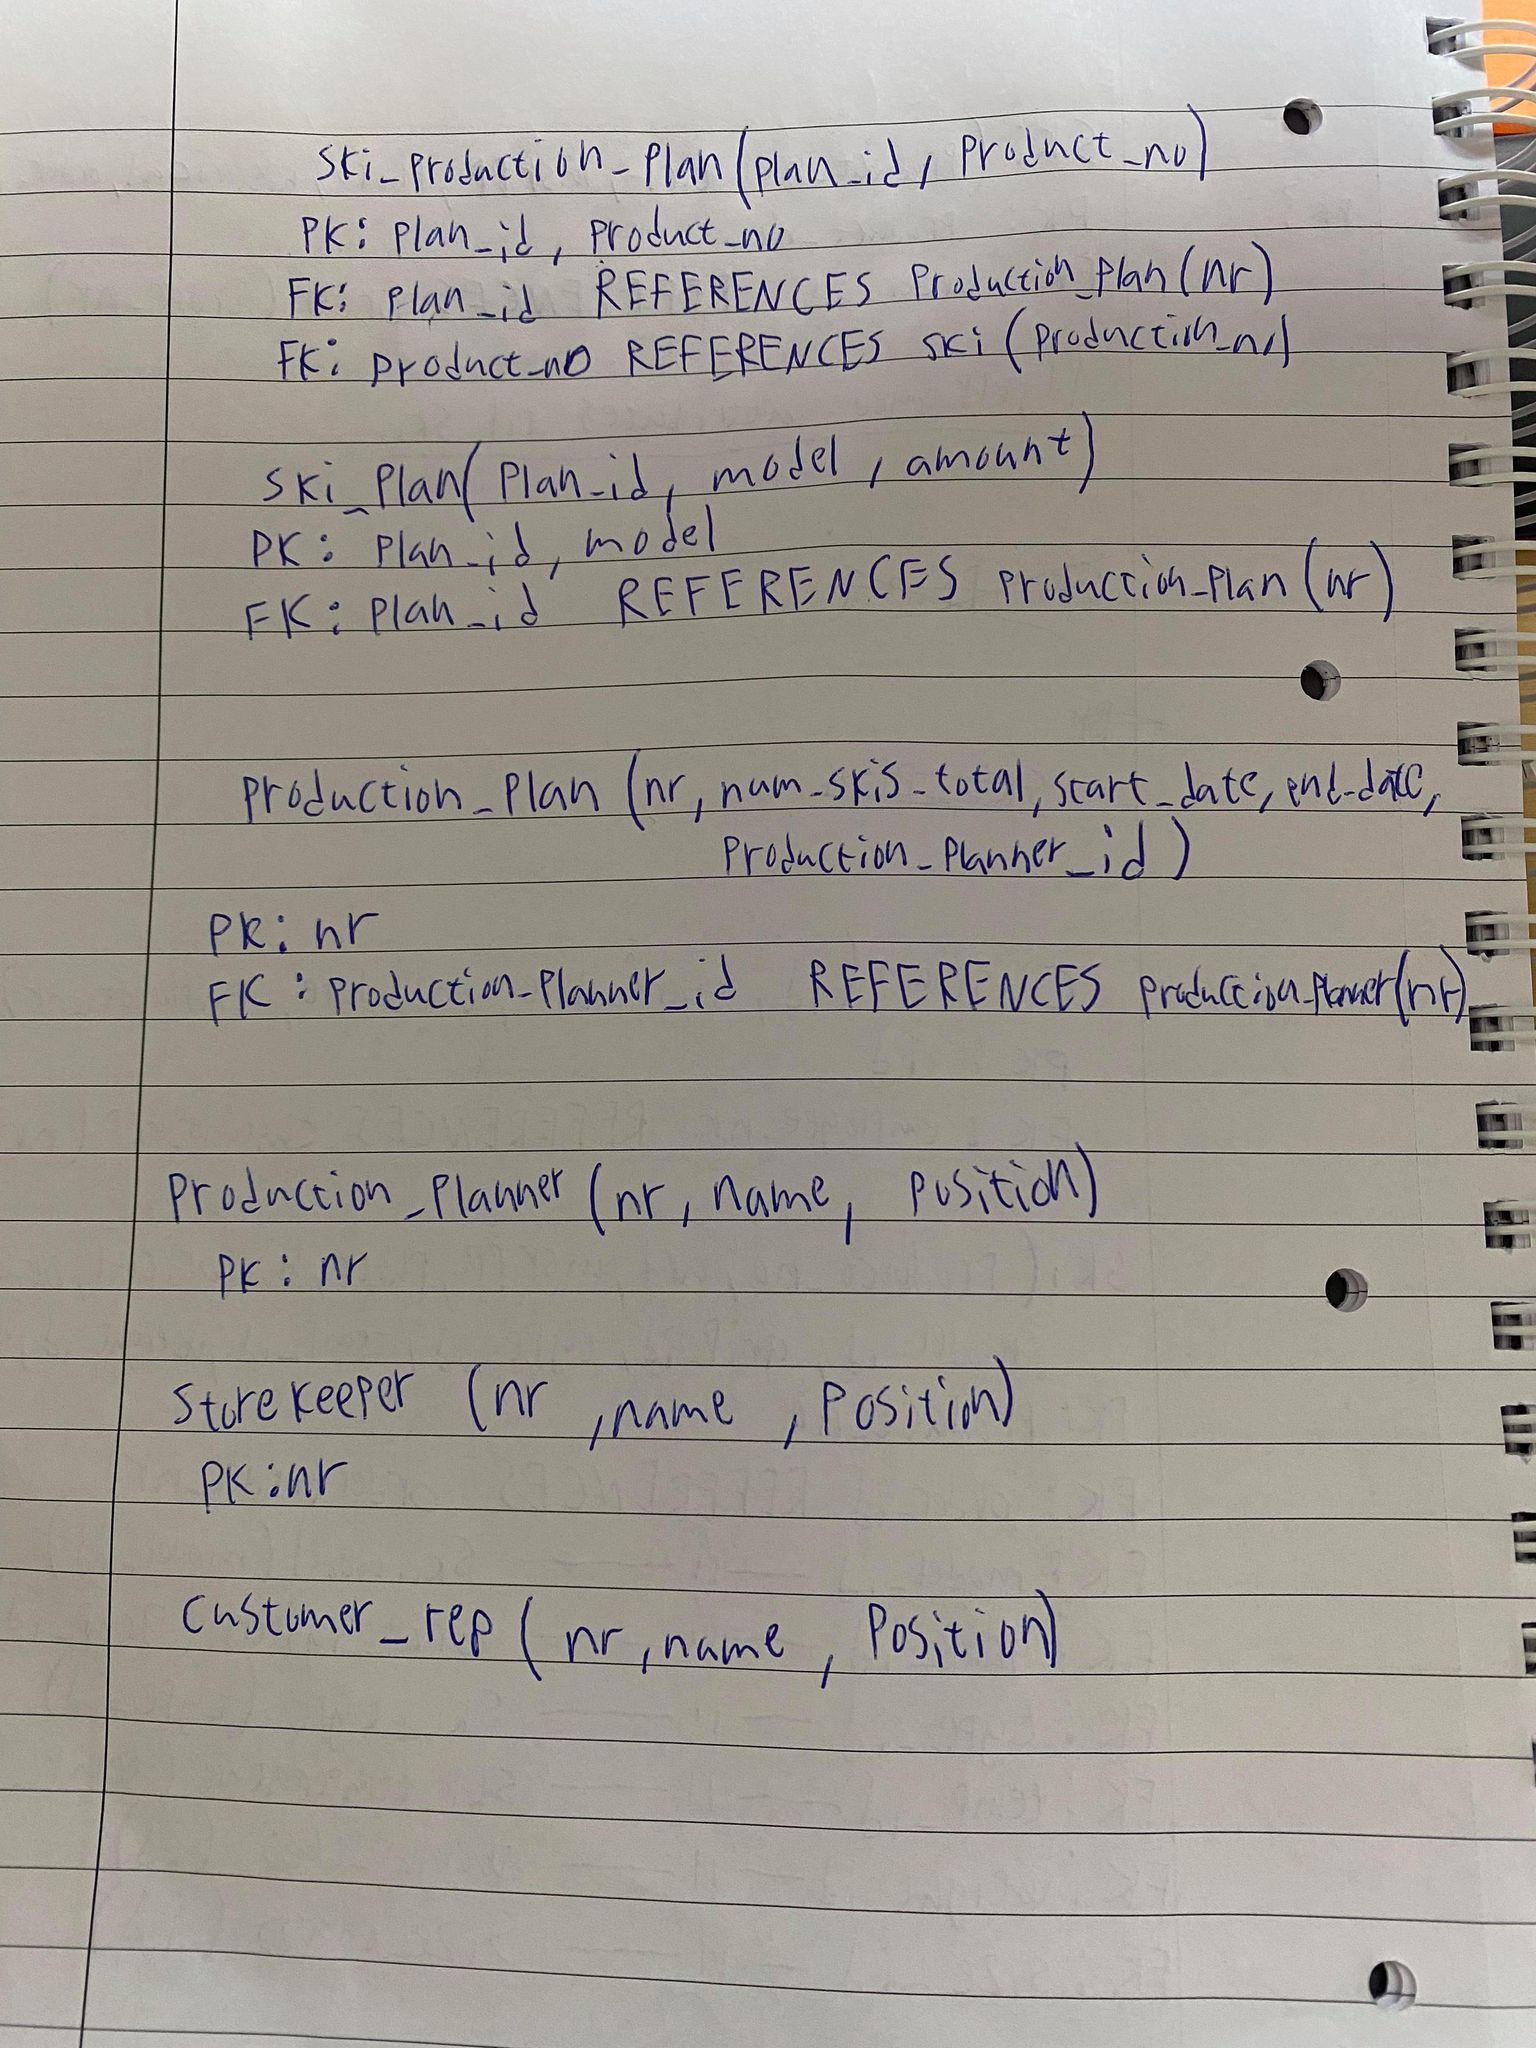 ski_production_plan(plan_id, product_no)
PK: plan_id, product_no
FK: plan_id REFERENCES production_plan(nr)
FK: product_no REFERENCES ski(production_no)
ski_plan(plan_id, model, amount)
PK: plan_id, model
FK: plan_id REFERENCES production_plan(nr)
production_plan (nr, num_skis_total, start_date, end_date,
production_planner_id)
PK: nr
FK: production_planner_id REFERENCES production_planner(nr)
production_planner (nr, name, position)
PK: nr
storekeeper (nr, name, position)
PK: nr
customer_rep (nr, name, position)